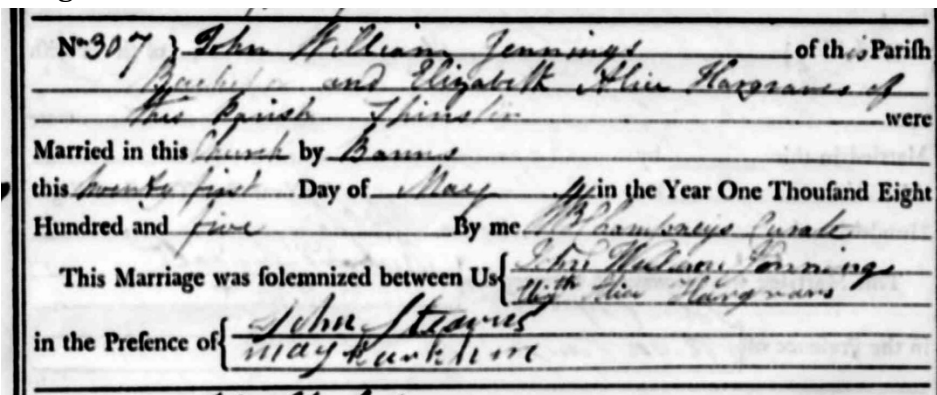 No. 307 } John William Jennings of this Pariſh
Bachelor and Elizabeth Alice Hargraves of
this Parish Spinster were
Married in this Church by Banns
this twenty first Day of May in the Year One Thouſand Eight
Hundred and five By me Curate
This Marriage was ſolemnized between Us { John William Jennings
Elizth Alice Hargraves
in the Preſence of { John Stearns